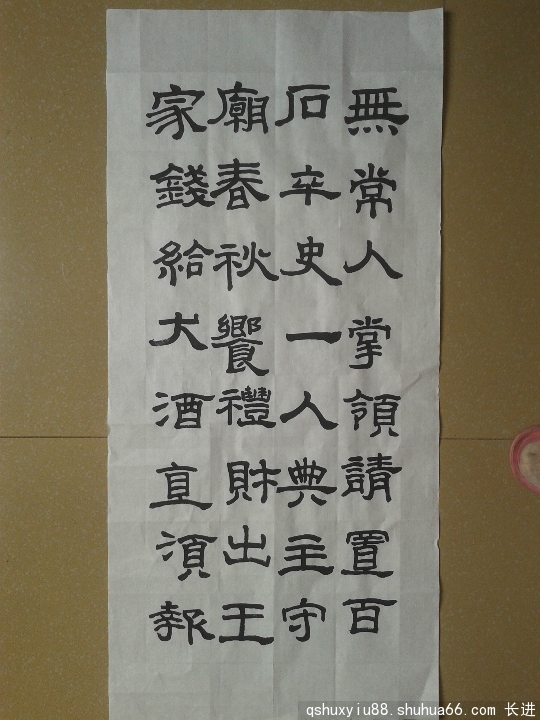 無常人掌領請置百
石卒史一人典主守
廟春秋饗禮財出王
家錢給大酒直須報
qshuxyiu88.shuhua66.com 长进